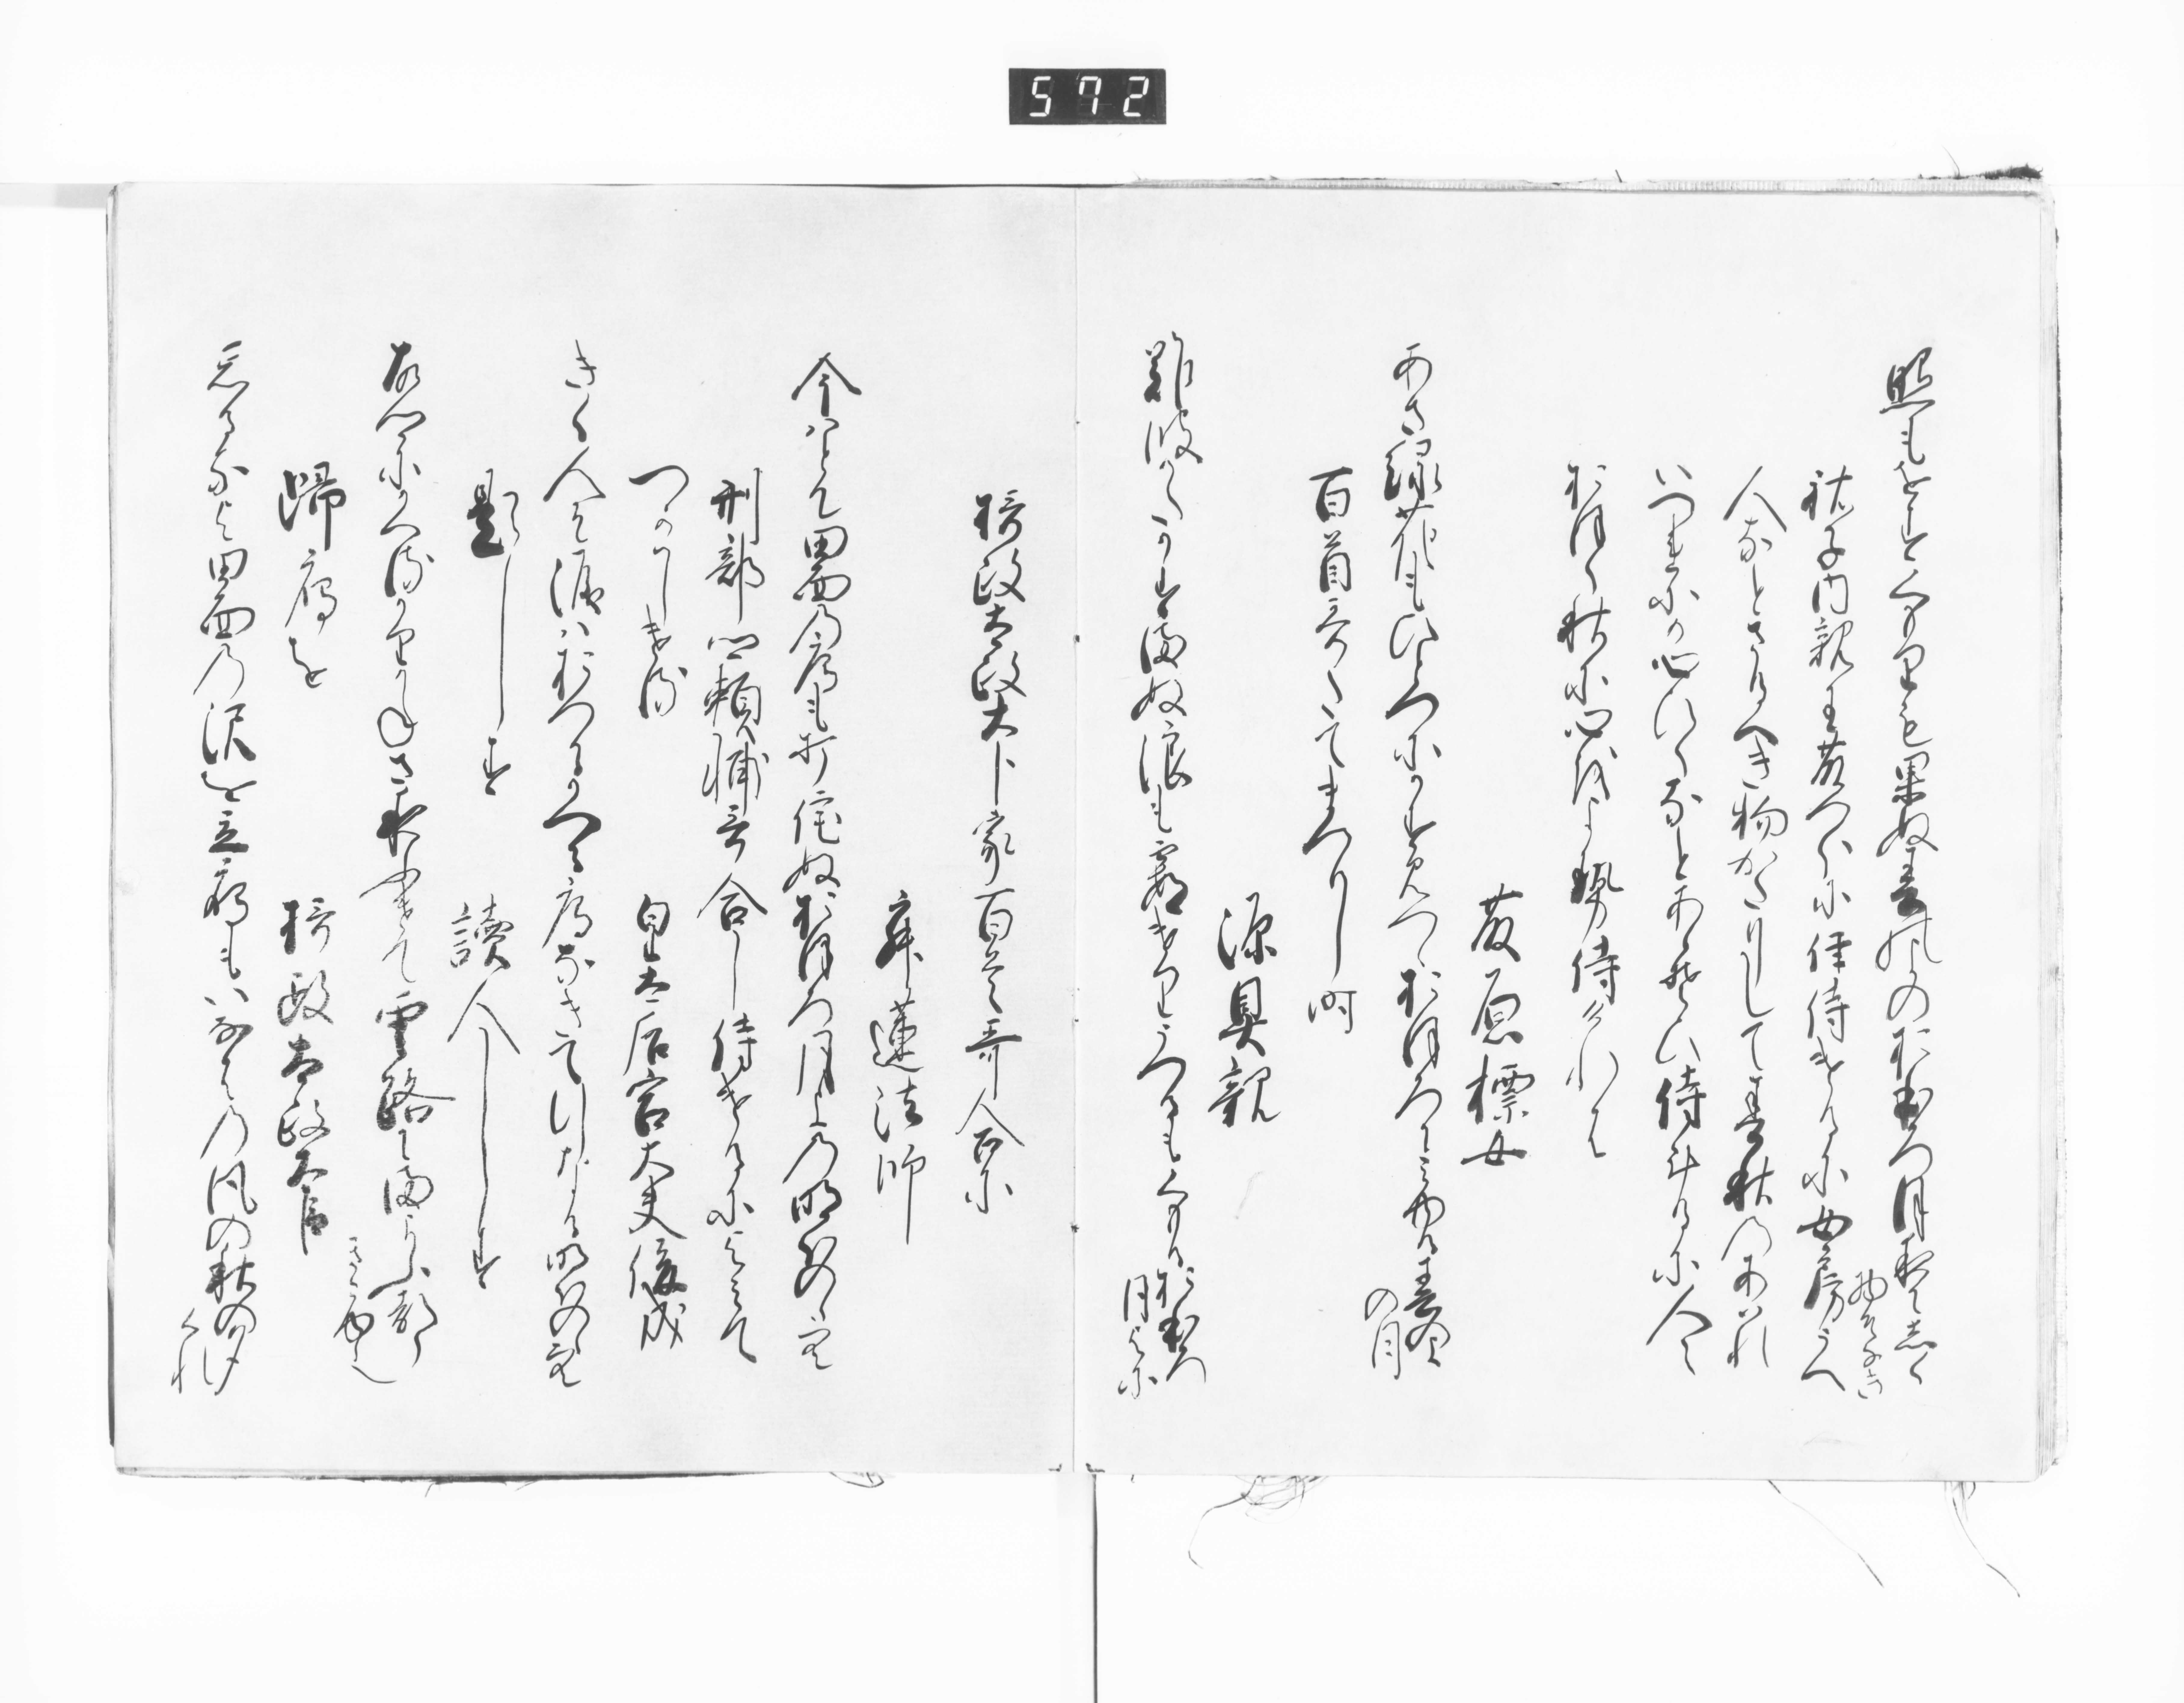 572
照もせすくもりも果ぬ春夜のおほろ月夜にしく
物そなき
祐子内親王藤つほに住侍けるに女房うへ
人なとさるへき物かたりして春秋のあはれ
いつれにか心ひくなとあらそひ侍けるに人々
おほく秋に心をよせ侍けれは
藤原標女
あさ緑花もひとつにかすみつゝおほろにみゆる春夜
の月
百首哥たてまつりし時
源具親
難波かたかすまぬ浪も霞けりうつるもくもるおほろ
月よに
摂政太政大臣家百首哥合に
寂蓮法師
今はとて田面の雁も打侘ぬおほろ月よの明ほのゝ空
刑部卿頼輔哥合し侍けるによみて
つかはしける 皇太后宮大夫俊成
きく人そ涙はおつるかへる雁なきて行なる明ほのゝ空
題しらす 讀人しらす
故郷にかへるかりかねさ夜ふけて雲路にまよふ聲
きこゆ也
帰雁を 摂政太政大臣
忘るなよ田面の沢を立雁もいなはの風の秋の夕
くれ